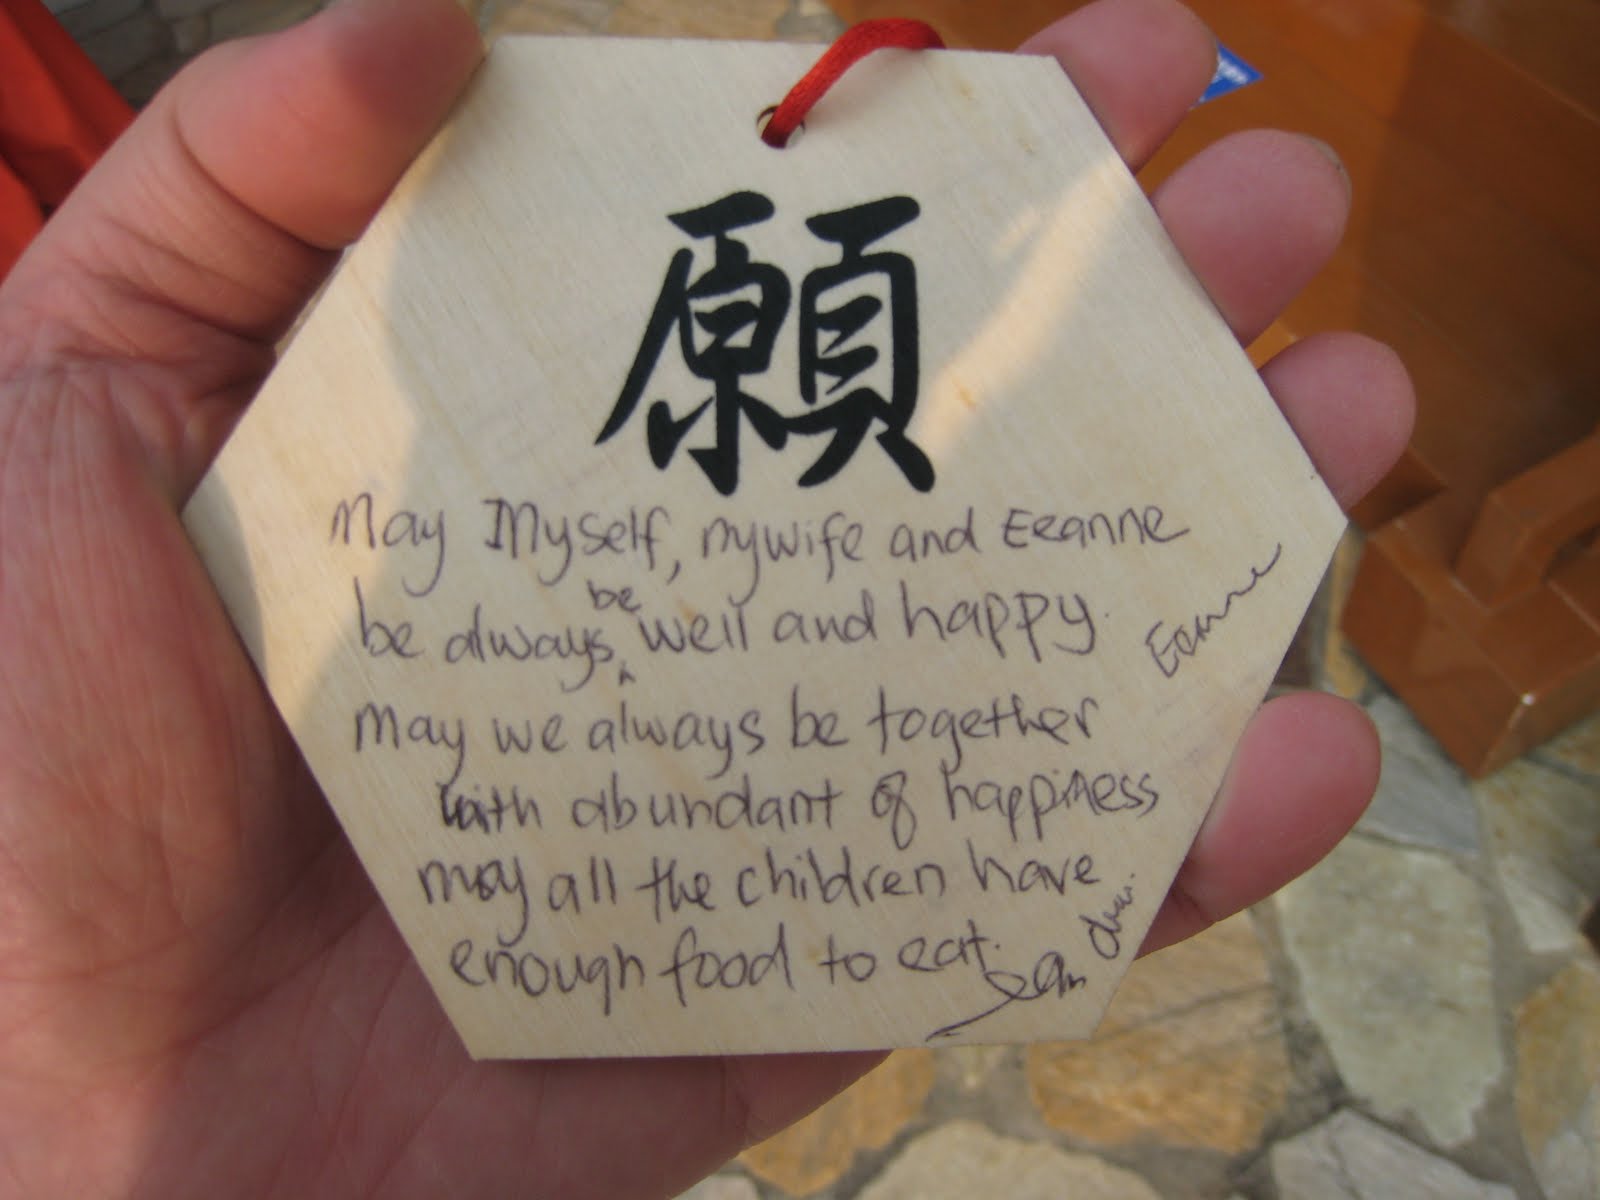 願
May Myself, my wife and Eeanne
be always be well and happy.
May we always be together
with abundant of happiness
may all the children have
enough food to eat.